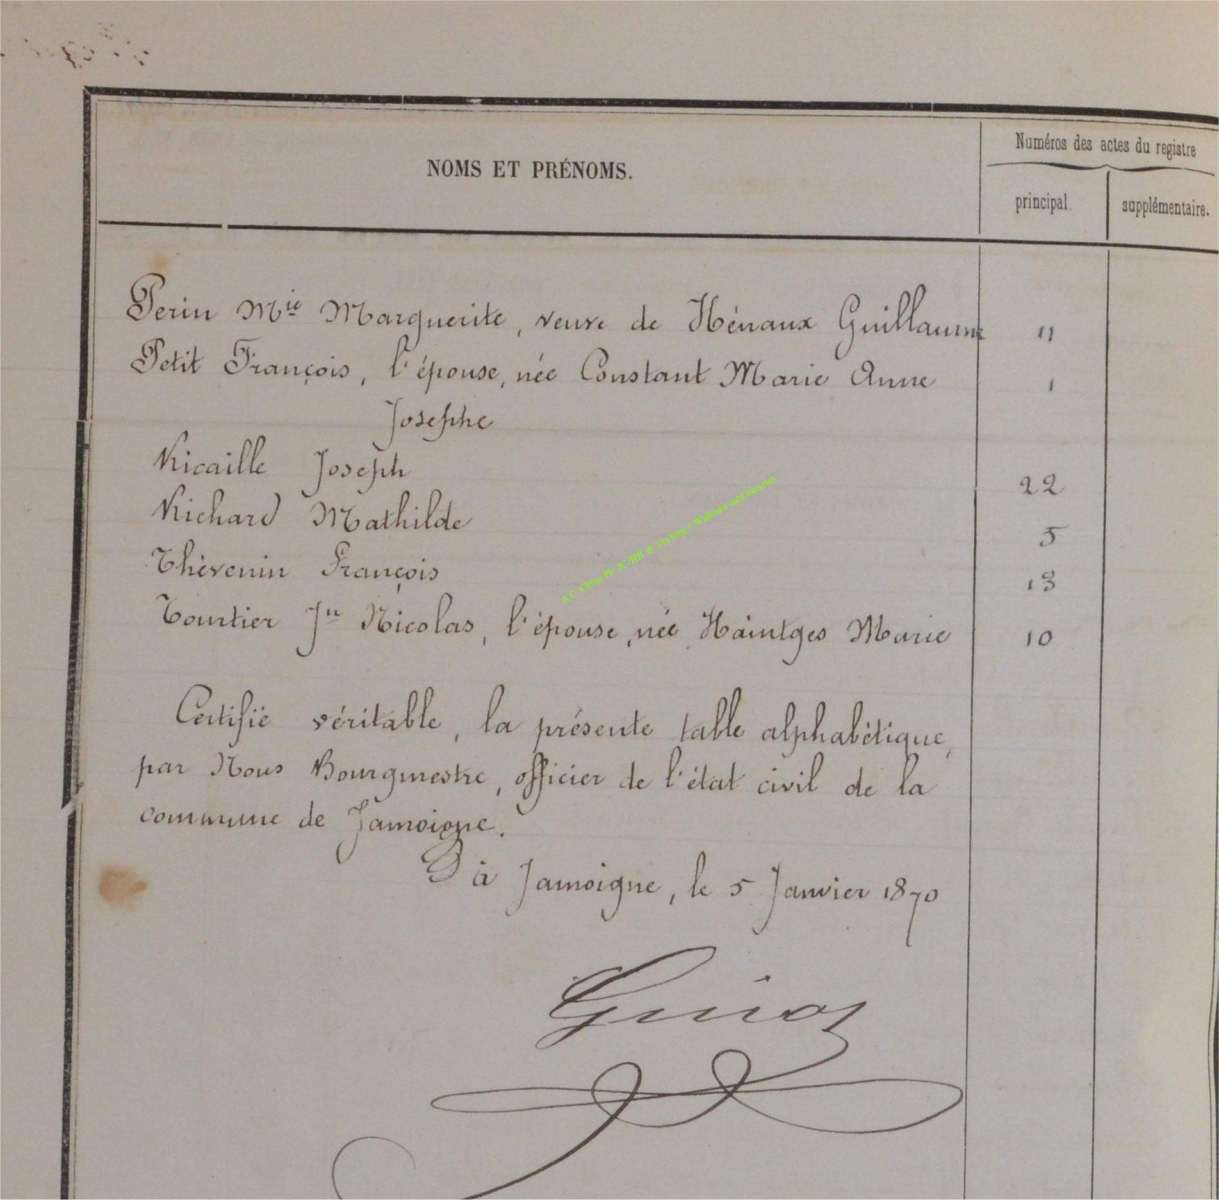 NOMS ET PRÉNOMS.
Numéros des actes du registre
principal.
supplémentaire.
Perin Mie Marguerite, veuve de Hénaux Guillaume 11
Petit François, l'épouse, née Constant Marie Anne 1
Josephe
Ricaille Joseph 22
Richard Mathilde 5
Thèvenin François 13
Tourtier Jn Nicolas, l'épouse, née Haintges Marie 10
Certifié véritable, la présente table alphabétique,
par Nous Bourgmestre, officier de l'état civil de la
commune de Jamoigne.
à Jamoigne, le 5 Janvier 1870